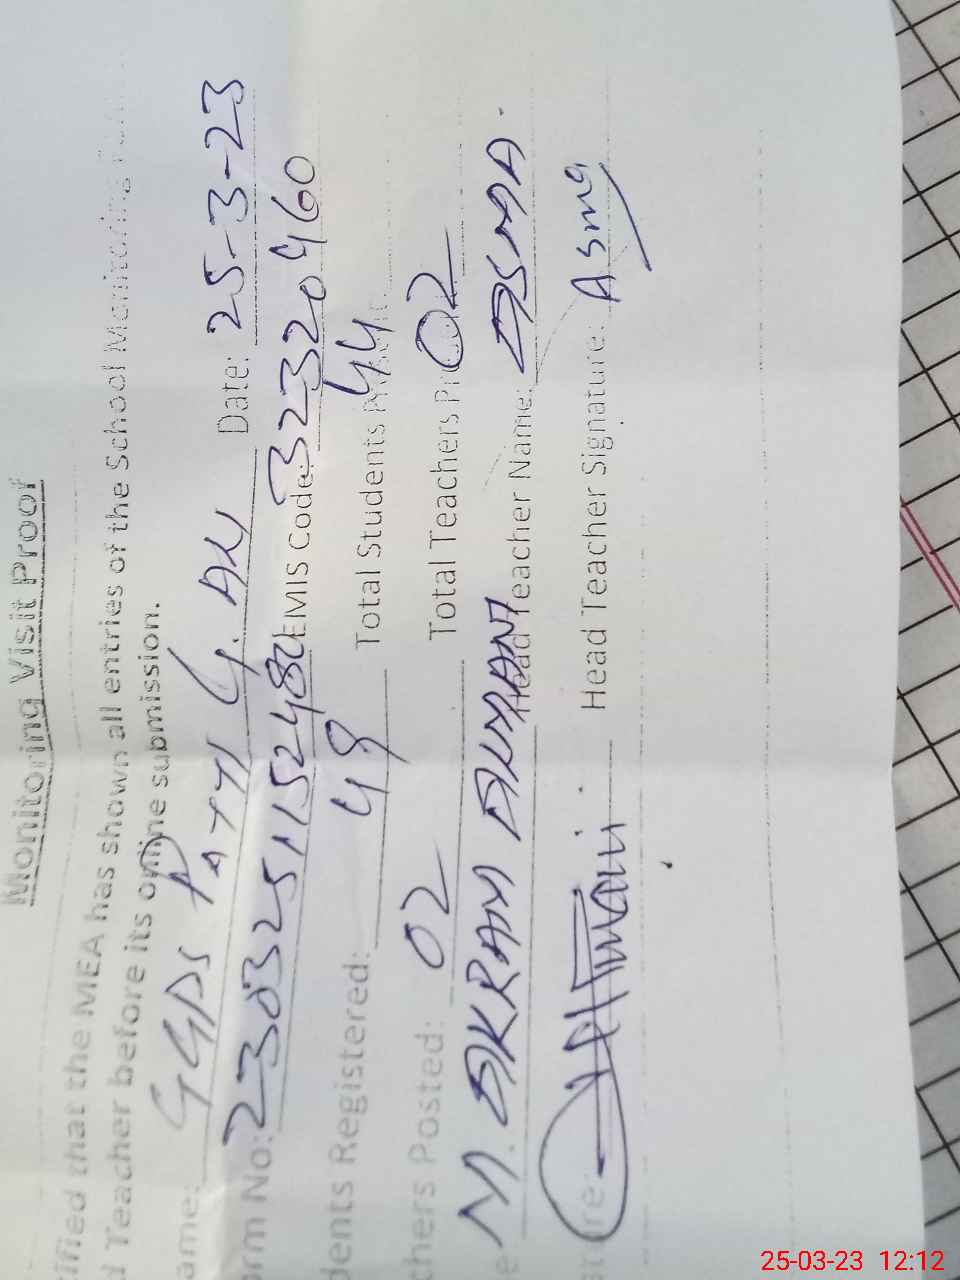 Monitoring Visit Proof
tified that the MEA has shown all entries of the School Monitoring
d Teacher before its online submission.
ame: GGPS PATTI G. ALI Date: 25-3-23
orm No: EMIS Code: 32320460
dents Registered: 49 Total Students Present: 44
thers Posted: 02 Total Teachers Present: 02
e M. AKRAM Head Teacher Name: ASMA.
Head Teacher Signature: Asma
25-03-23 12:12